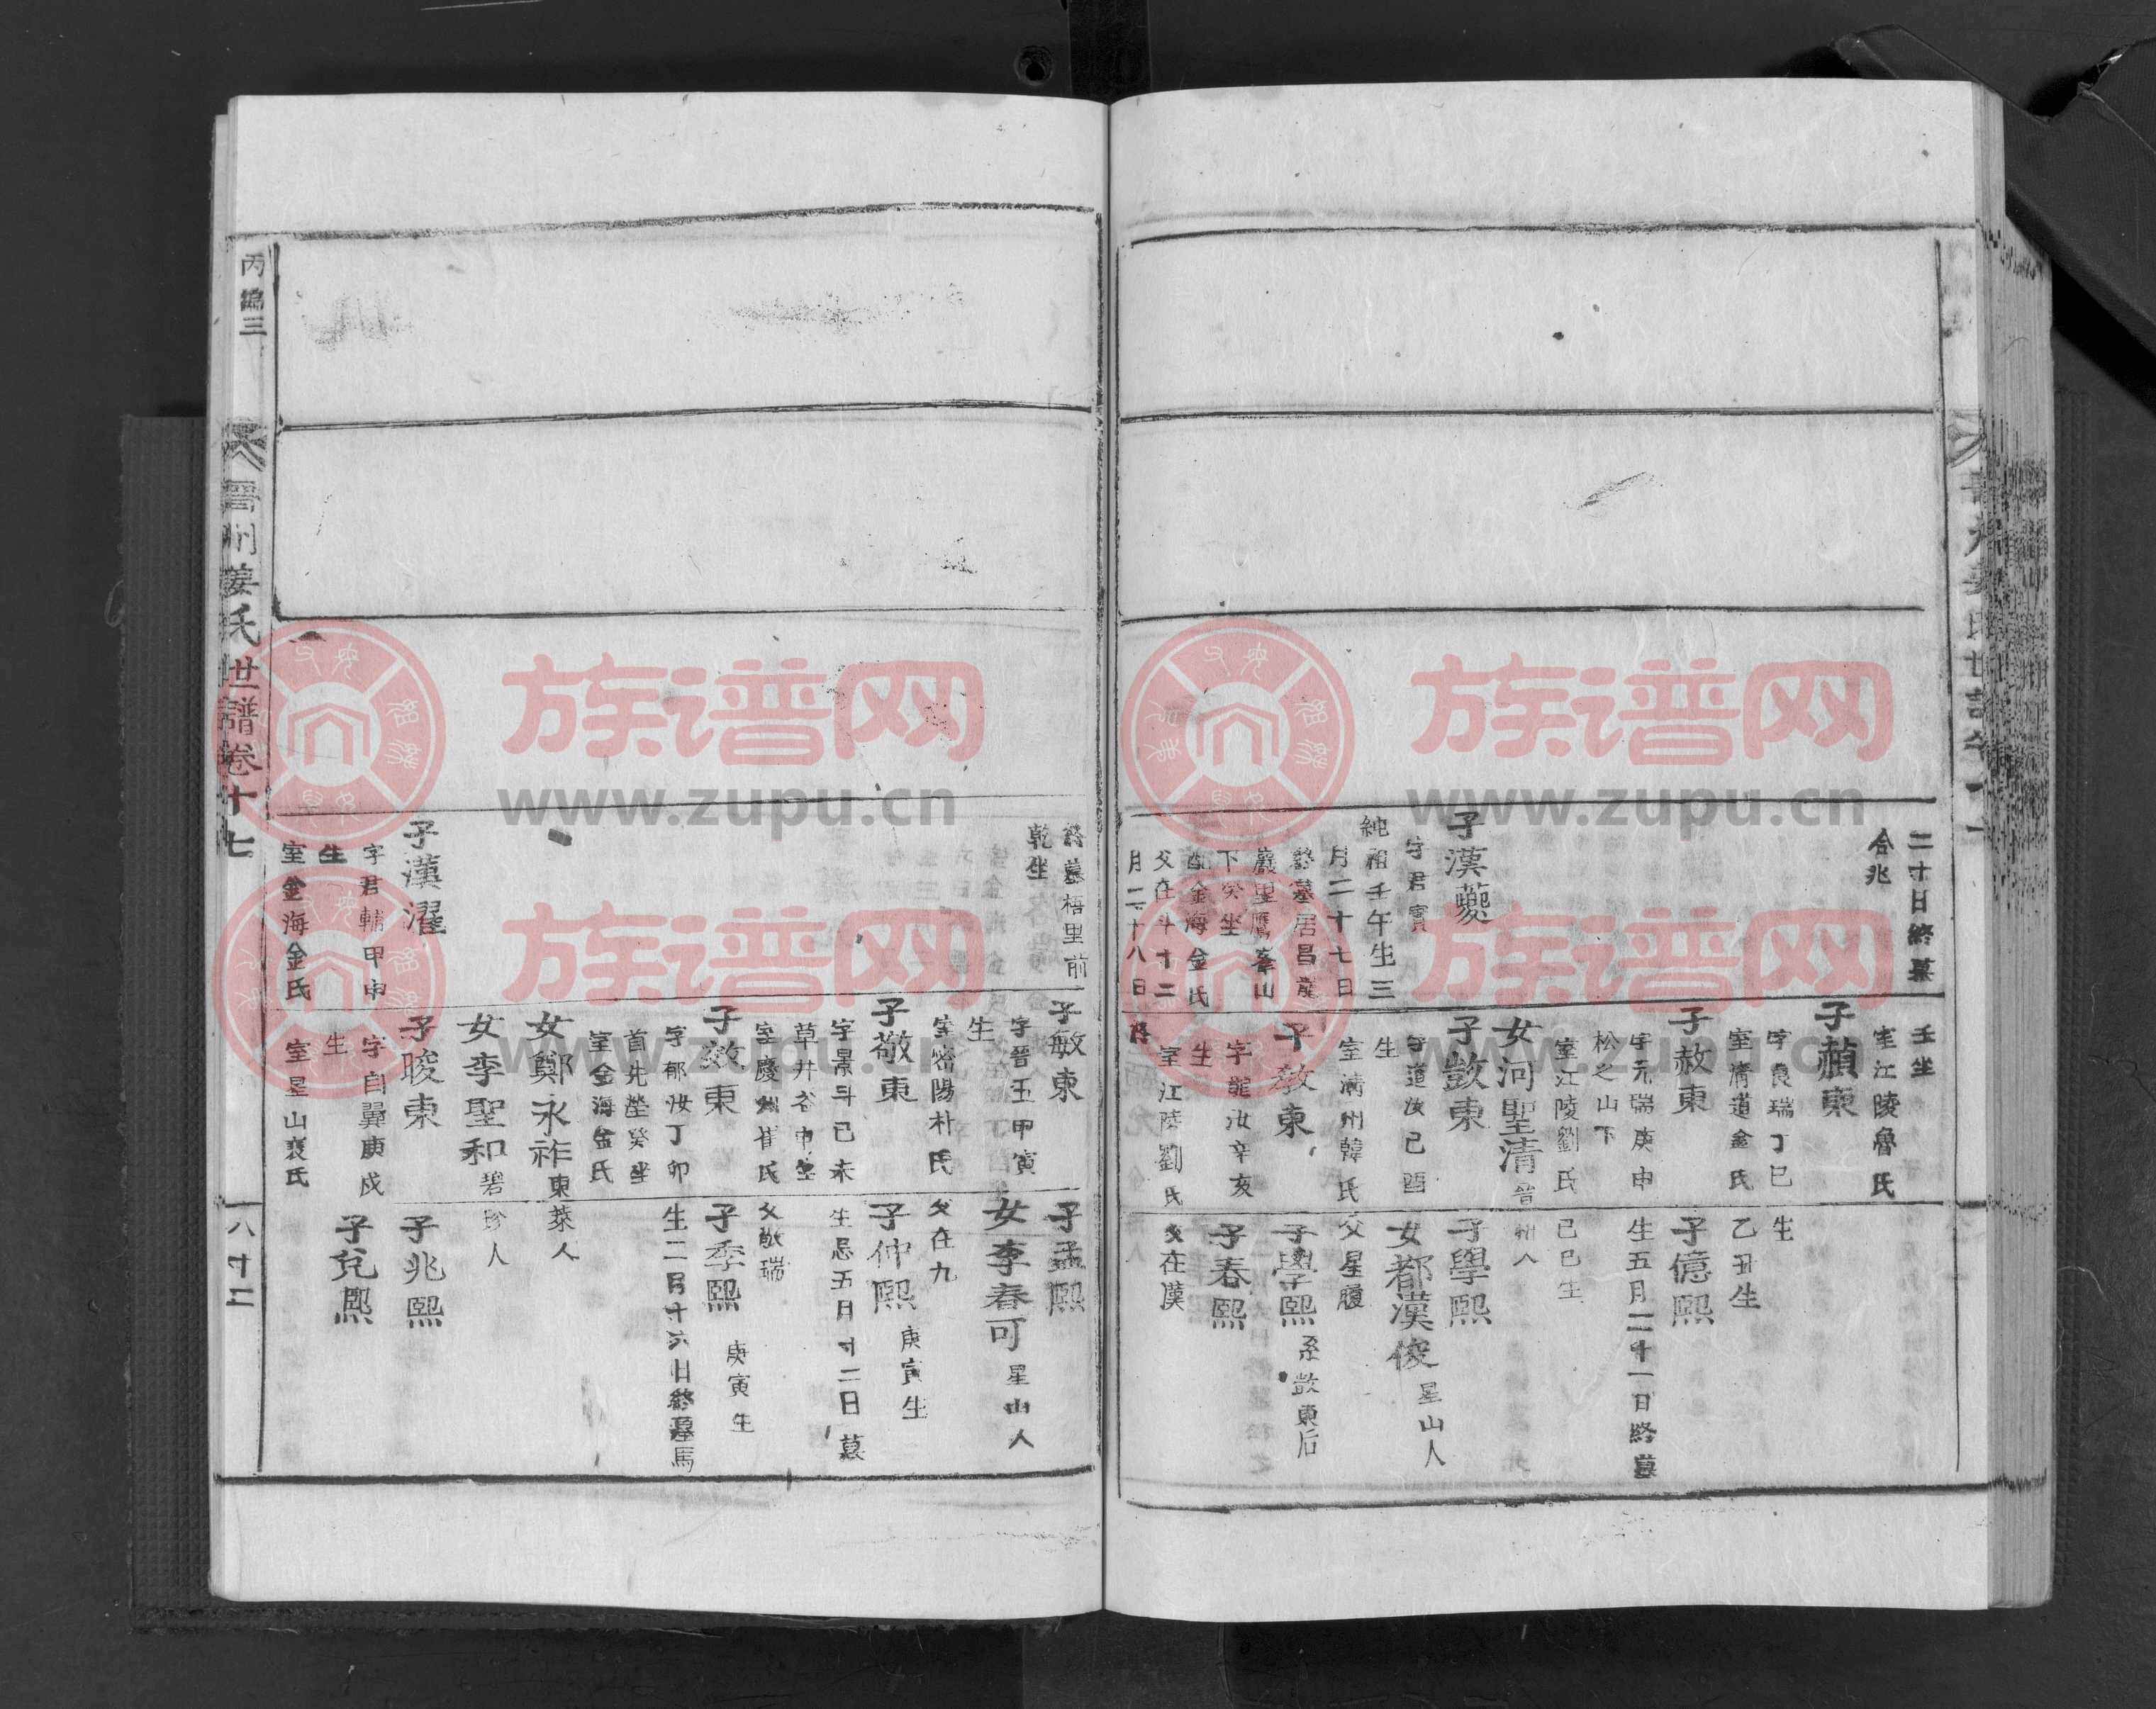 二十日終墓
合兆
子漢夔
字君實
純祖壬午生三
月二十七日
終墓居昌
巖里鷹峯山
下癸坐
配金海金氏
父在斗十二
月二十八日
壬坐
室江陵魯氏
子䫆東
字良瑞丁巳
室清道金氏
子赦東
字元瑞庚申
松之山下
室江陵劉氏
女河聖清
晉州人
子敱東
字道汝己酉
生
室淸州韓氏
子敎東
字龍汝辛亥
生
室江陵劉氏
終
生
乙丑生
子億熙
生五月二十一日終墓
己巳生
子學熙
女都漢俊
星山人
父星履
子學熙
系敱東后
子春熙
父在漢
終墓梧里前
乾坐
子漢濯
字君輔甲申
生
室金海金氏
子敏東
字晉玉甲寅
生
室密陽朴氏
子敬東
字景斗己未
草井谷申坐
室慶州崔氏
子效東
字郁汝丁卯
首先塋癸坐
室金海金氏
女鄭永祚
東萊人
女李聖和
碧珍人
子晙東
字自翼庚戌
生
室星山裵氏
子孟熙
女李春可
星山人
父在九
子仲熙
庚寅生
生忌五月十二日墓
父敬瑞
子季熙
庚寅生
生二月十六日終墓馬
子兆熙
子兌熙
丙編三
晉州姜氏世譜卷十七
八十二
族谱网
www.zupu.cn
族谱网
www.zupu.cn
族谱网
www.zupu.cn
族谱网
www.zupu.cn